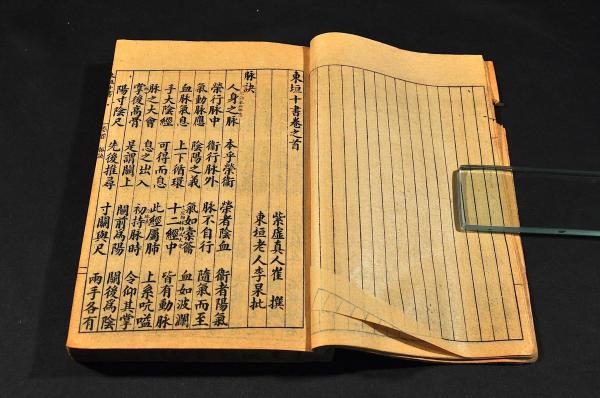 東垣十書卷之首
紫虛真人崔 撰
東垣老人李杲批
脉訣
人身之脉 本乎榮衛 榮者陰血 衛者陽氣
榮行脉中 衛行脉外 脉不自行 隨氣而至
氣動脉應 陰陽之義 氣如橐籥 血如波瀾
血脉氣息 上下循環 十二經中 皆有動脉
手大陰經 可得而息 此經屬肺 上系吭嗌
脉之大會 息之出入 初持脉時 令仰其掌
掌後高骨 是謂關上 關前為陽 關後為陰
陽寸陰尺 先後推尋 寸關與尺 兩手各有